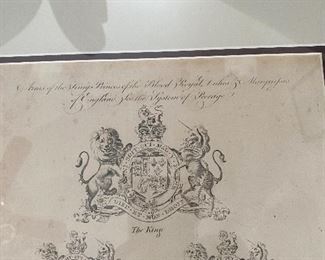 Arms of the King, Princes of the Blood Royal, Dukes & Marquisses
of England, for the System of Peerage
The King